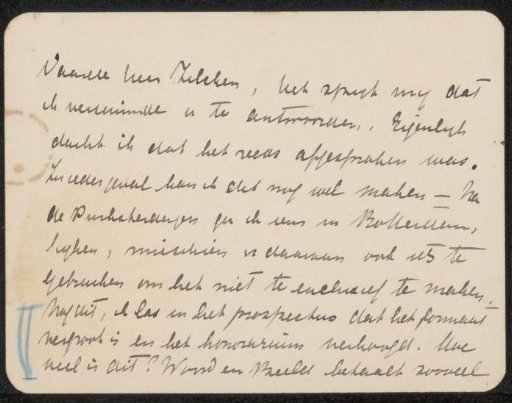 Waarde heer Zilcken, het spijt mij dat
ik verzuimde u te antwoorden. Eigenlijk
dacht ik dat het reeds afgesproken was.
In ieder geval kan ik dit nog wel maken — Na
de Pinksterdagen ga ik eens in Rotterdam,
kijken, misschien is daarvan ook iets te
gebruiken om het niet te exclusief te maken.
Nog dit, ik las in het prospectus dat het formaat
vergroot is en het honorarium verhoogd. Hoe
veel is dit? Woord en Beeld betaalt zooveel